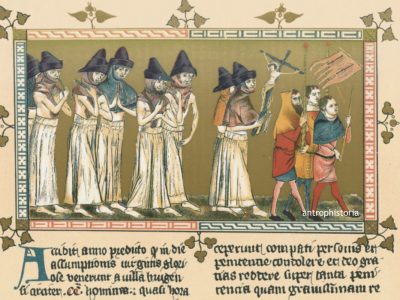 antrophistoria
Accidit anno predicto q' in die
assumptionis uirginis glori
ose venerunt a villa brugen
si circiter .CC. homines quasi hora
ceperunt compati personis et
penitentie condolere et deo gra
tias reddere super tanta peni
tencia quam grauissimam re